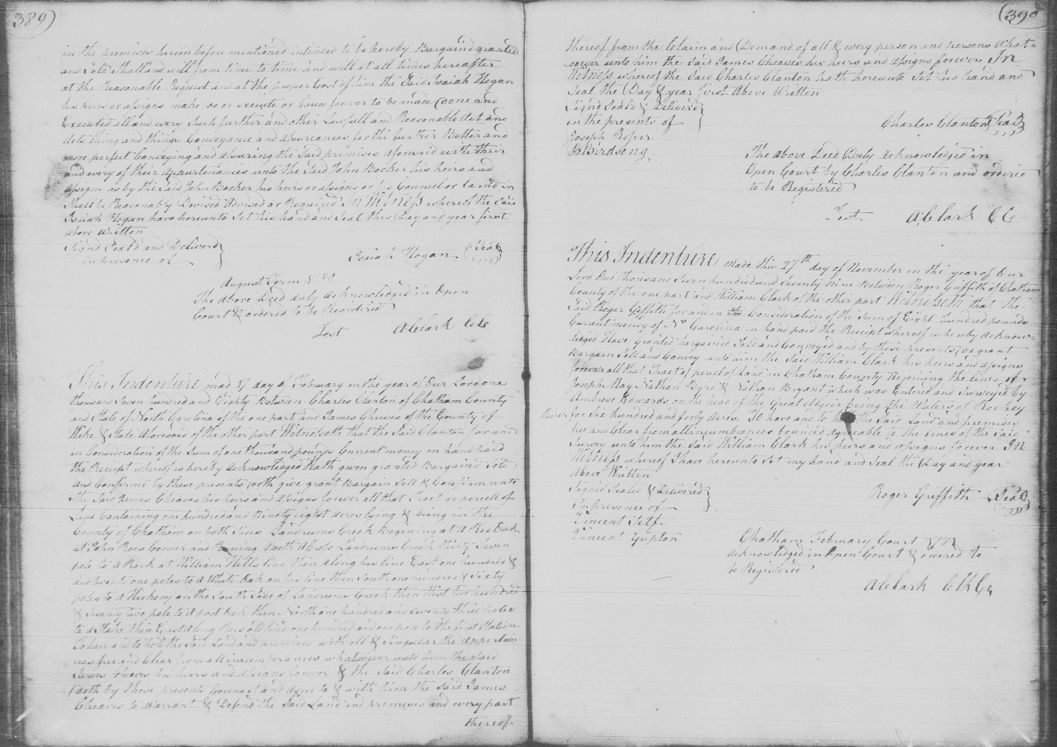 389
in the premises herein before mentioned intended to be hereby Bargained granted
and sold shall and will from time to time and will at all times hereafter
at the Reasonable Request and at the proper Cost of him the Said Isaiah Hogan
his heirs or assigns make do or execute or cause for ever to be made Done and
Executed all and every Such further and other Lawfull and Reasonable Act and
acts thing and things Conveyance and assurances for the further Better and
more perfect Conveying and assuring the Said premises aforesaid with their
and every of their appurtenances unto the Said John Booker his heirs and
assigns as by the Said John Booker his heirs or assigns or his Councel Larned in
Shall be Reasonably Devised Advised or Required In Witness whereof the Said
Isaiah Hogan have hereunto Set his hand and Seal this Day and year first
above written
Signd Seald and Deliverd
in presence of
Isaiah Hogan Seal
August Term 1780
The above Deed duly acknowledged in Open
Court & ordered to be Registered
Test A Clark CCC
This Indenture made 17 day of February in the year of Our Lord one
thousand Seven hundred and Eighty Between Charles Clanton of Chatham County
and State of North Carolina of the one part and James Cheaves of the County of
Wake & State aforesaid of the other part Witnesseth that the Said Clanton for and
in Consideration of the Sum of one thousand pounds Current money in hand paid
the Receipt whereof is hereby acknowledged Hath given granted Bargaind Sold
and Confirmd by these presents Doth give grant Bargain Sell & Confirm unto
the Said James Cheaves his heirs and assigns forever all that Tract or parcel of
Land Containing one hundred and ninety eight acres lying & being in the
County of Chatham on both Sides Landrums Creek Begining at A Red Oak
at John Roes Corner and Runing North Across Landrums Creek thirty Seven
pole to A Rock at William Hills line then along his line East one hundred &
and twenty one poles to A White Oak on his line then South one hundred & Sixty
poles to A Hickory on the South Side of Landrums Creek then West two hundred
& Seventy two pole to A post Oak then North one hundred and Seventy three poles
to a Stake then East along Roes old line one hundred and one pole to the first Station
To have and to hold the Said Land and premises with all & Singular the appurtenan-
ces free and Clear from all incumbrances whatsoever unto him the Said
James Cheaves his heirs and assigns forever & the Said Charles Clanton
Doth by these presents Covenant and agree to & with him the Said James
Cheaves to Warrant & Defend the Said Land and premises and every part
thereof
390
thereof from the Claim and Demand of all & every person and persons What-
soever unto him the Said James Cheaves his heirs and assigns forever In
Witness whereof the Said Charles Clanton hath hereunto Set his hand and
Seal the Day & year first Above Written
Signd Seald & Deliverd
in the presents of
Charles Clanton Seal
Joseph Roper
Birdsong
The above Deed Duly Acknowledged in
Open Court by Charles Clanton and ordered
to be Registered
Test. A Clark CC
This Indenture made this 27th day of November in the year of Our
Lord One thousand Seven hundred and Seventy Nine Between Roger Griffith of Chatham
County of the one part and William Clark of the other part Witnesseth that The
Said Roger Griffith for and in the Consideration of the Sum of Eight hundred pounds
Current money of No Carolina in hand paid the Receipt whereof is hereby acknow-
ledged Have granted bargained Sold and Conveyed and by these presents do grant
Bargain Sell and Convey unto him the Said William Clark his heirs and assigns
forever all that Tract of parcel of Land in Chatham County Adjoining the Lines of
Joseph May Nathan & Nathan Bryant which was Entered and Surveyed by
Ambrose Edwards on the side of the Great being the Waters of Rockey
River for Six hundred and forty Acres To Have and to hold the Said Land and premises
free and Clear from all incumbrances bounded Agreeable to the Lines of the Said
Survey unto him the Said William Clark his heirs and assigns forever In
Witness whereof I have hereunto Set my hand and Seal the Day and year
Above Written
Signed Sealed & Delivered
In presence of
Roger Griffith Seal
Vincent Self
Vincent Gupton
Chatham February Court
Acknowledged in Open Court & ordered to
be Registered
A Clark